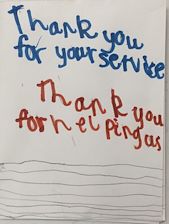 Thank you
for your service
Thank you
for helping us